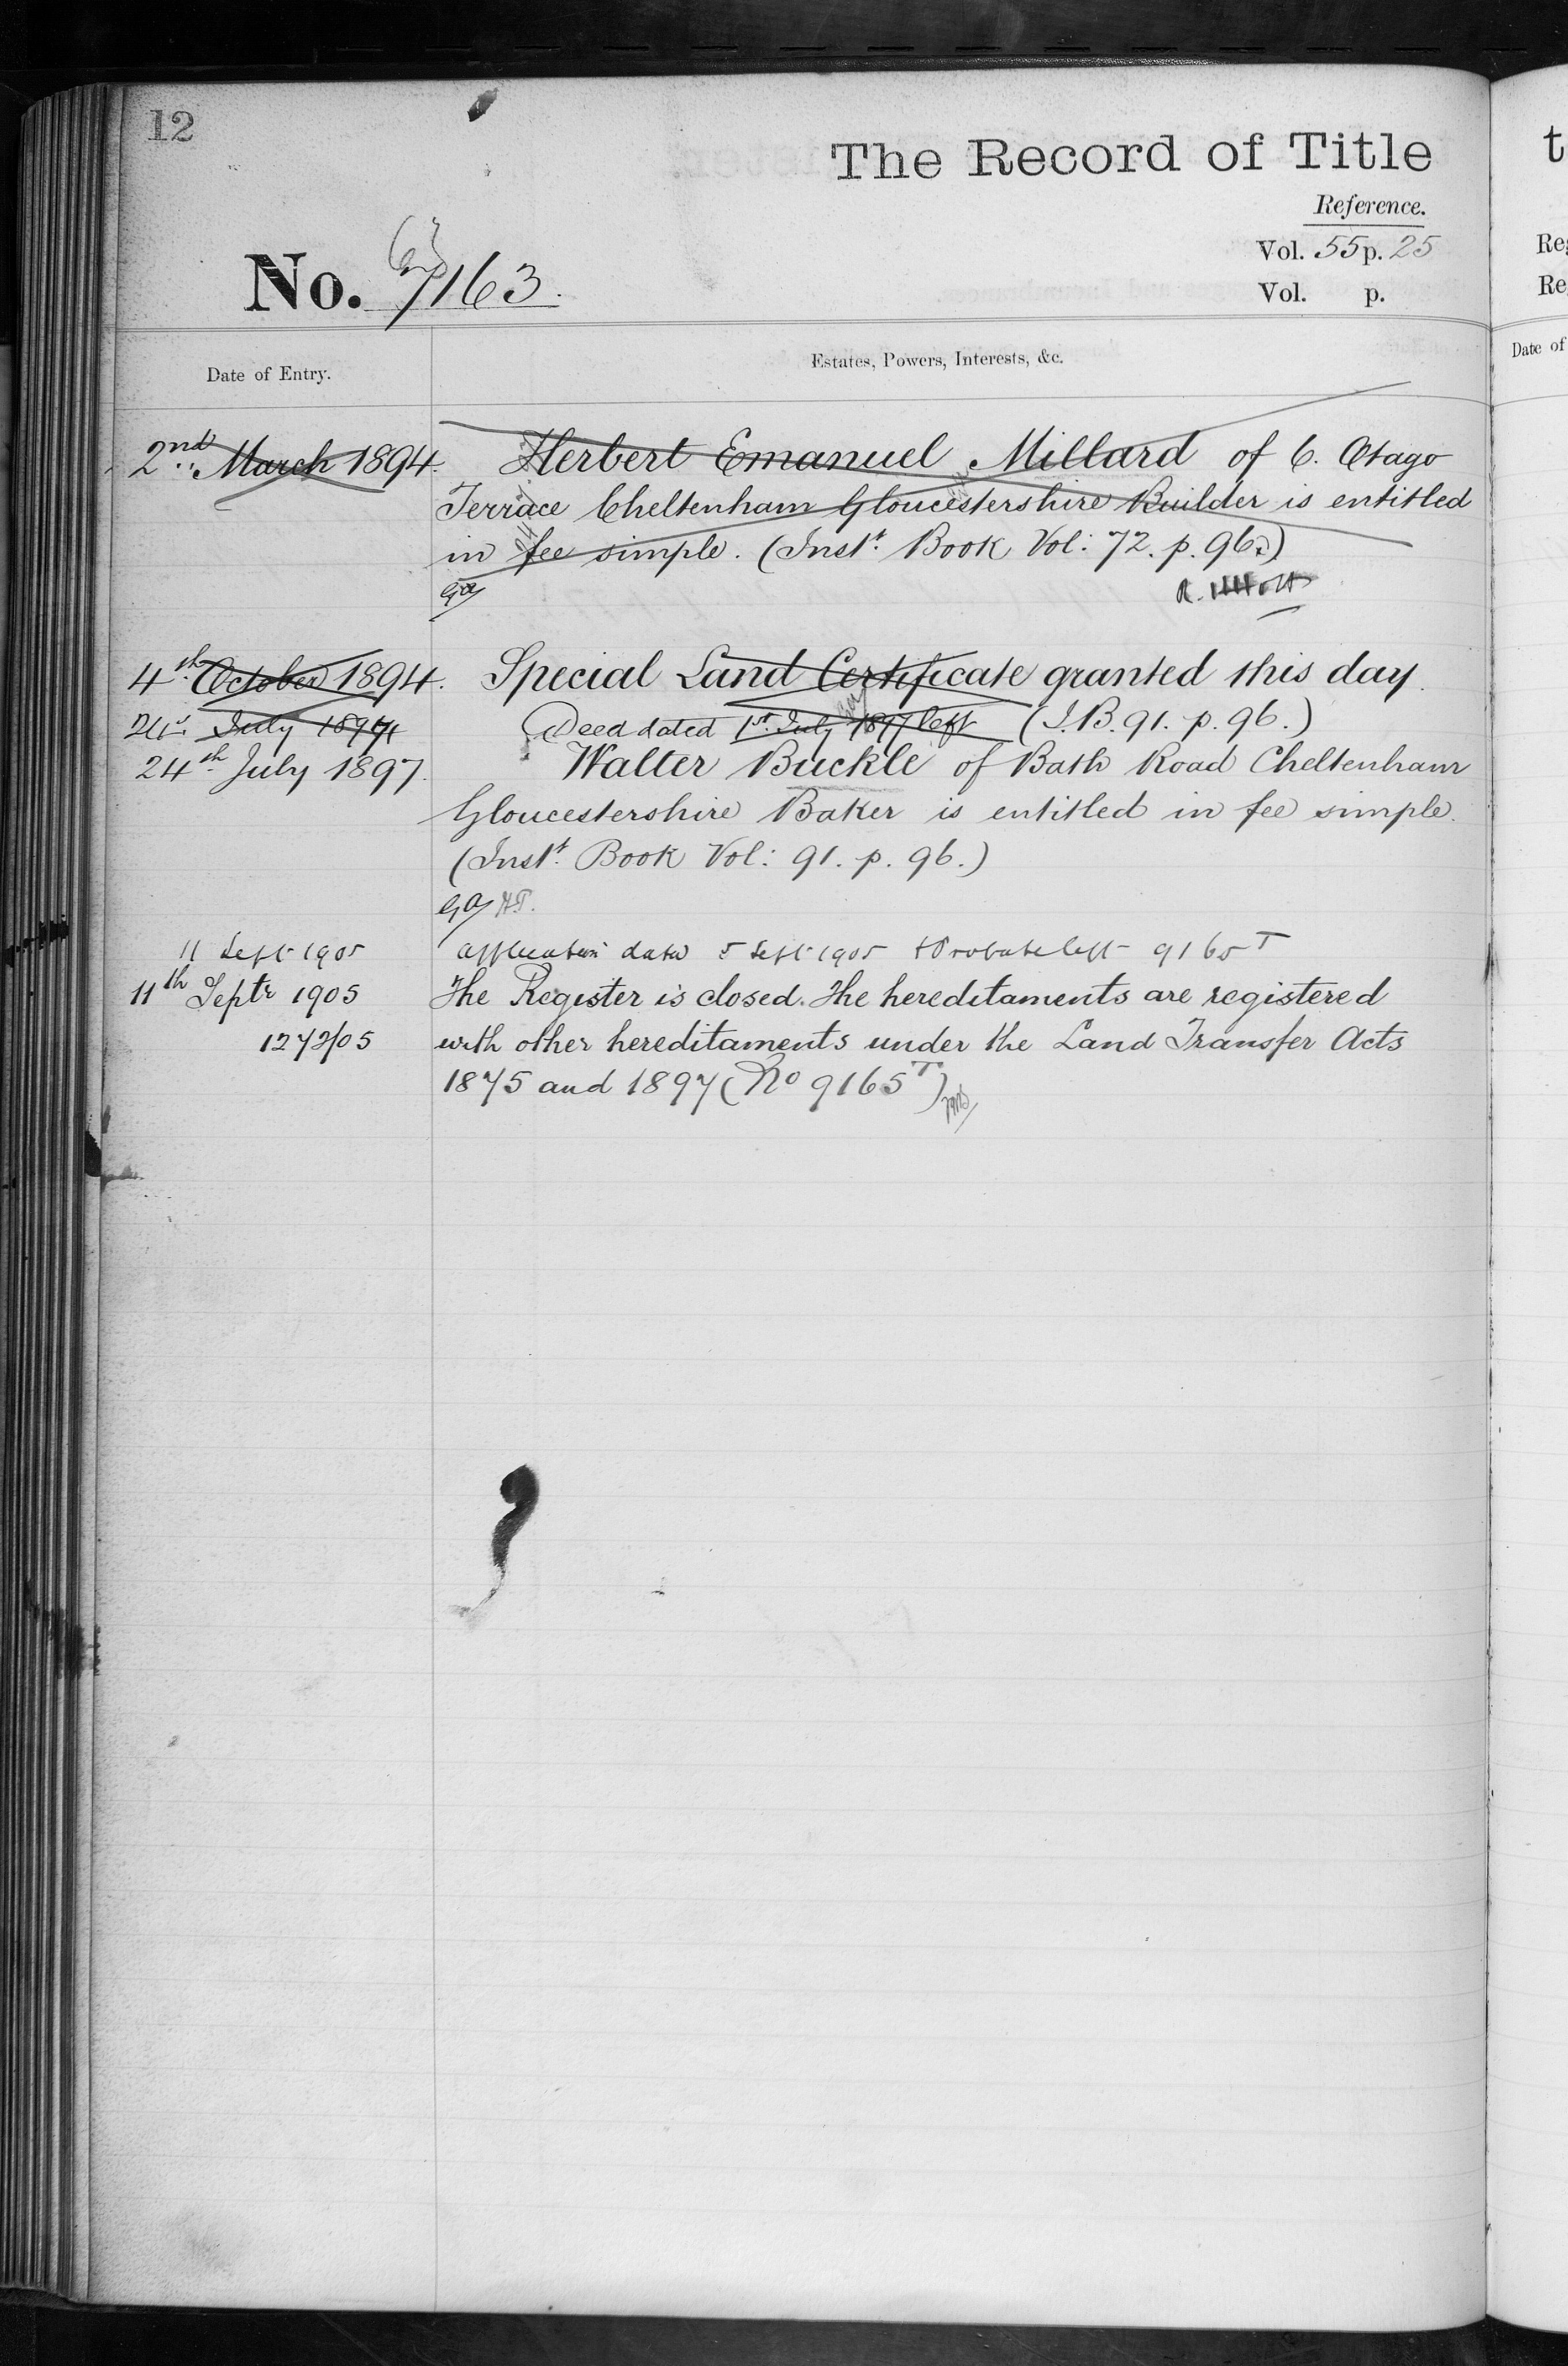 12
The Record of Title
Reference.
Vol. 55 p. 25
Vol. p.
No. 7163.
Date of Entry.
Estates, Powers, Interests, &c.
2nd March 1894. Herbert Emanuel Millard of 6. Otago
Terrace Cheltenham Gloucestershire Builder is entitled
in fee simple. (Inst. Book Vol: 72. p. 96.)
4th October 1894. Special Land Certificate granted this day.
July 1897 Deed dated 1st July 1897 left (I.B. 91. p. 96.)
24th July 1897. Walter Buckle of Bath Road Cheltenham
Gloucestershire Baker is entitled in fee simple.
(Inst. Book Vol: 91. p. 96.)
11 Sept 1905 application dated 5 Sept 1905 & Probate left 9165T
11th Septr 1905 The Register is closed. The hereditaments are registered
1272/05 with other hereditaments under the Land Transfer Acts
1875 and 1897 (No 9165T)
t
Reg
Re
Date of